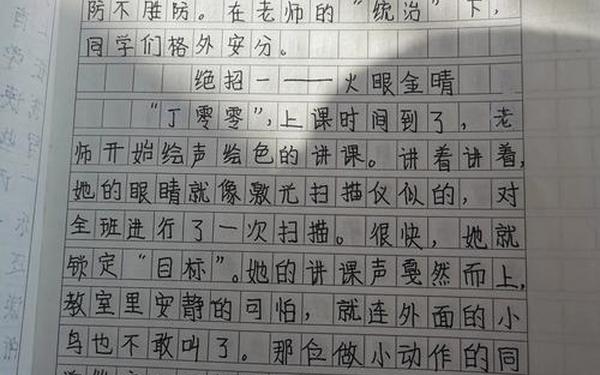 防不胜防。在老师的“统治”下,
同学们格外安分。
绝招一——火眼金晴
“丁零零”,上课时间到了,老
师开始绘声绘色的讲课。讲着讲着,
她的眼睛就像激光扫描仪似的,对
全班进行了一次扫描。很快,她就
锁定“目标”。她的讲课声戛然而上,
教室里安静的可怕,就连外面的小
鸟也不敢叫了。那位做小动作的同